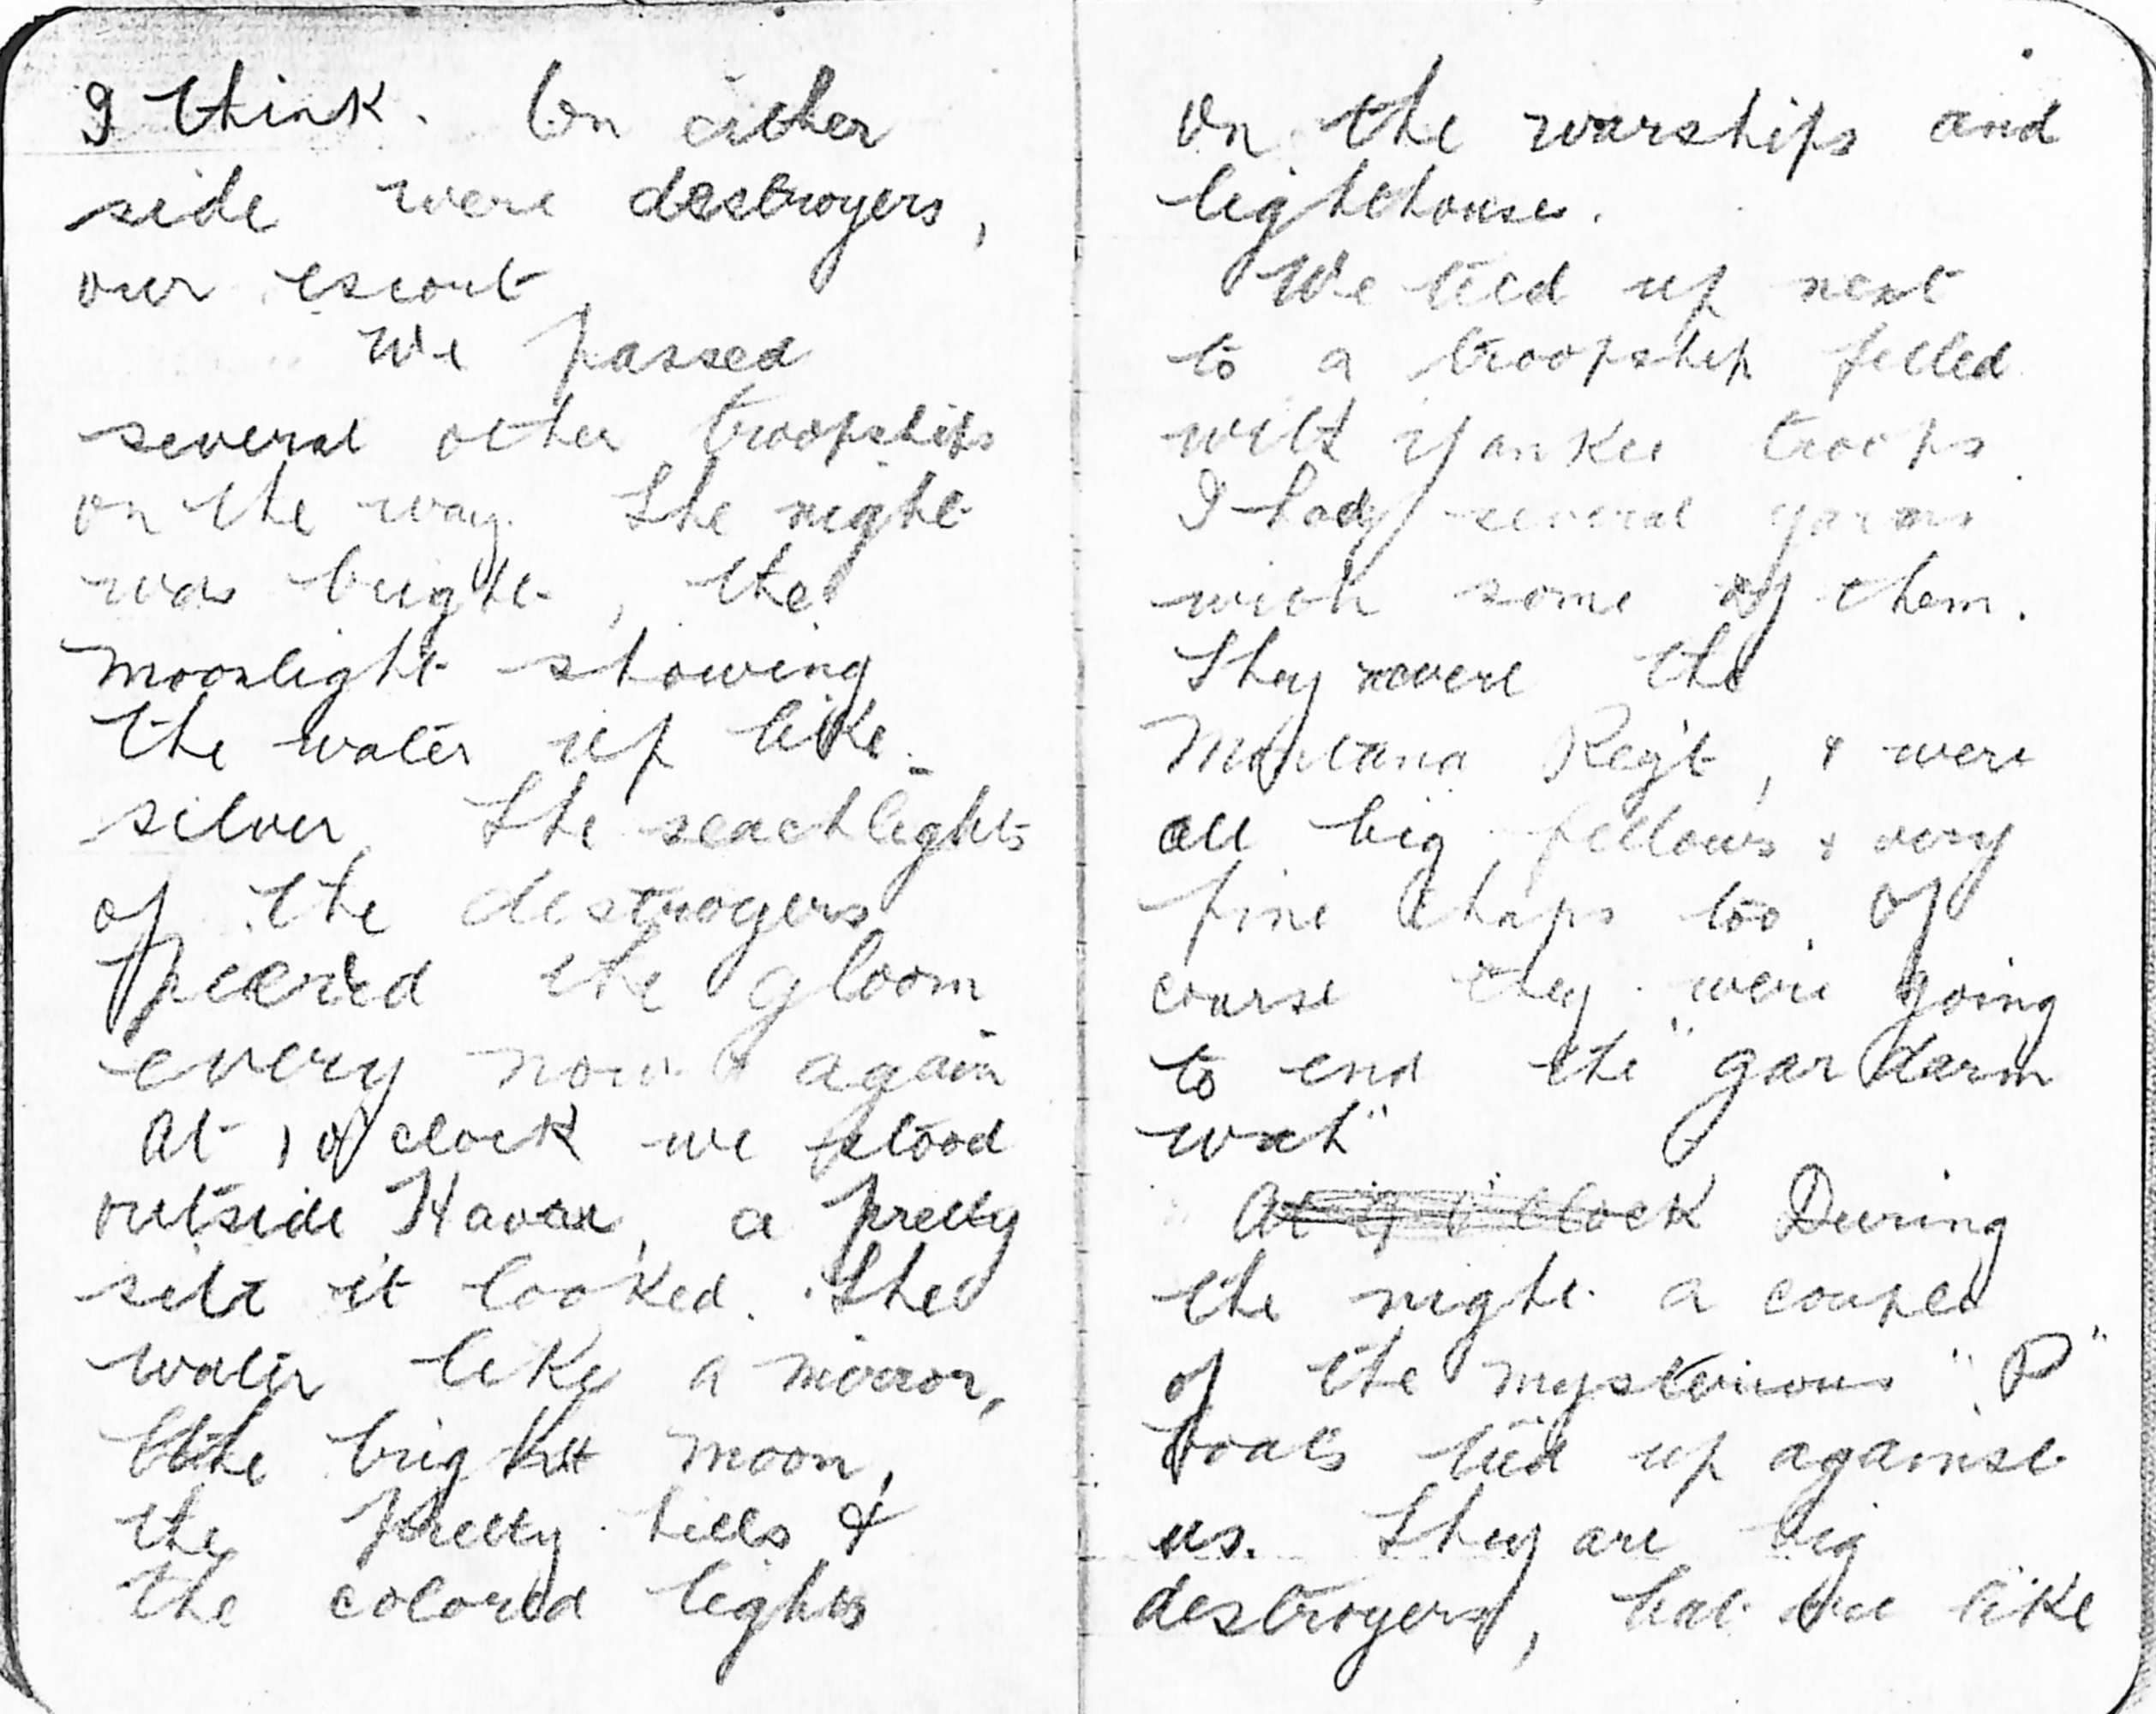 I think. On either
side were destroyers,
our escort
We passed
several other troopships
on the way. The night
was bright, the
moonlight showing
the water up like
silver. The seachlights
of the destroyers
pierced the gloom
every now & again
At 1 o'clock we stood
outside Havar, a pretty
site it looked. The
water like a mirror,
the bright moon,
the pretty hills &
the colored lights
on the warships and
lighthouse.
We tied up next
to a troopship filled
with Yankee troops.
I had several yarns
with some of them.
They were the
Montana Reg't, & were
all big fellows & very
fine chaps too. Of
course they were going
to end the "gar darm
wah"
At o'clock During
the night a couple
of the mysterious "P"
boats tied up against
us. They are big
destroyers, but are like